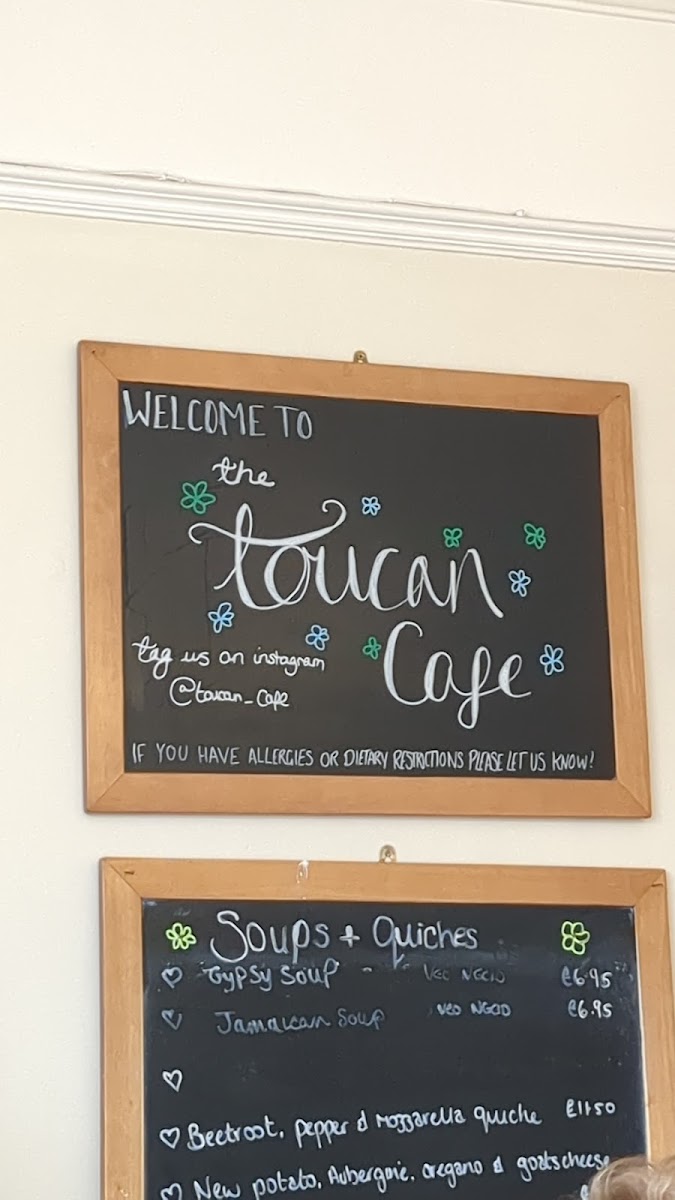 WELCOME TO
the
toucan
Cafe
tag us on instagram
@toucan_cafe
IF YOU HAVE ALLERGIES OR DIETARY RESTRICTIONS PLEASE LET US KNOW!
Soups + Quiches
Gypsy Soup - NGCIO £6.95
Jamaican Soup VEO NGCIO £6.95
Beetroot, pepper & Mozzarella quiche £11.50
New potato, Aubergine, oregano & goats cheese